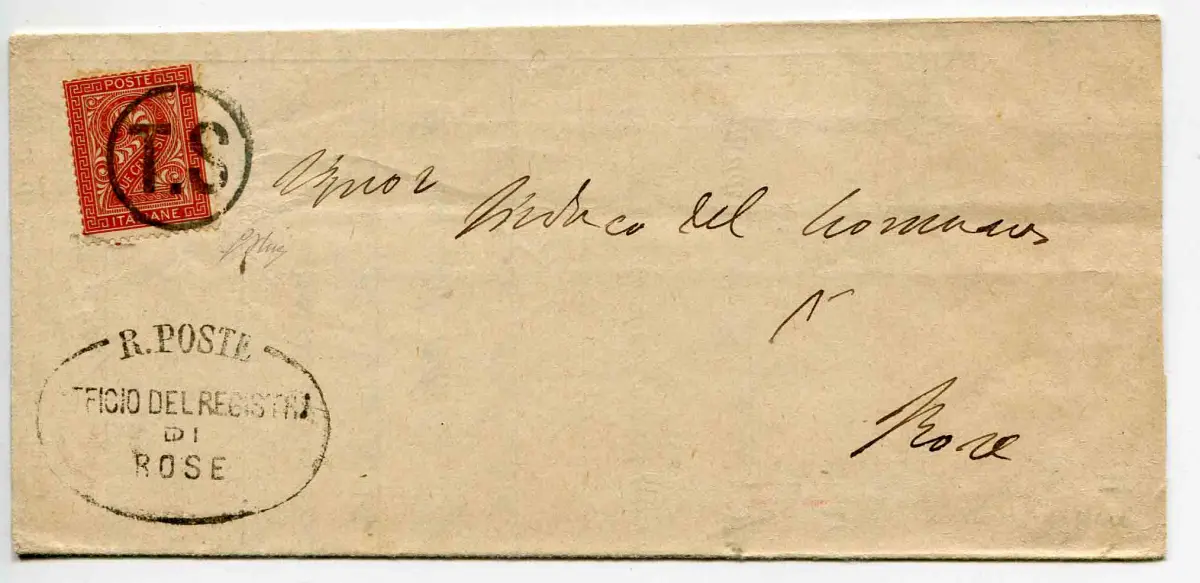 POSTE
DUE CENTESIMI
ITALIANE
T.S
Signor
Sindaco del Comune
Rose
R. POSTE
UFFICIO DEL REGISTRO
DI
ROSE